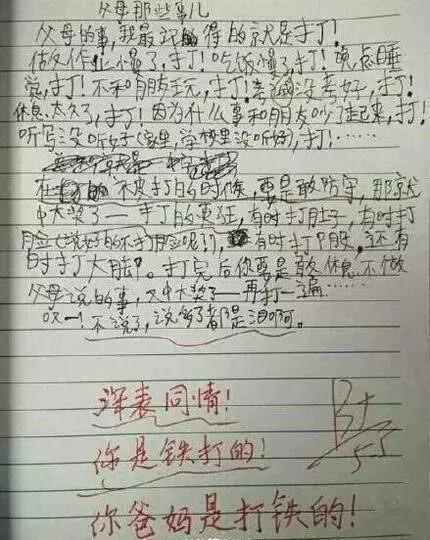 父母那些事儿
父母的事，我最记的得的就是打了！
做作业慢了，打！吃饭慢了，打！晚点睡
觉，打！不和有朋玩，打！考试没考好，打！
休息太久了，打！因为什么事和朋友吵了起来，打！
听写没听好（家里，学校里没听好），打！……
在 的 不皮打的时候，要是敢防守，那就
中大奖了——打的更狂，有时打肚子，有时打
脸（说好的不打脸呢！），有时打P股，还有
时打大腿。打完后你要是敢休息不做
父母说的事，又中大奖了——再打一遍……
哎—！不说了，说多了都是泪啊。
深表同情！
B+
你是铁打的！
5.5
你爸妈是打铁的！